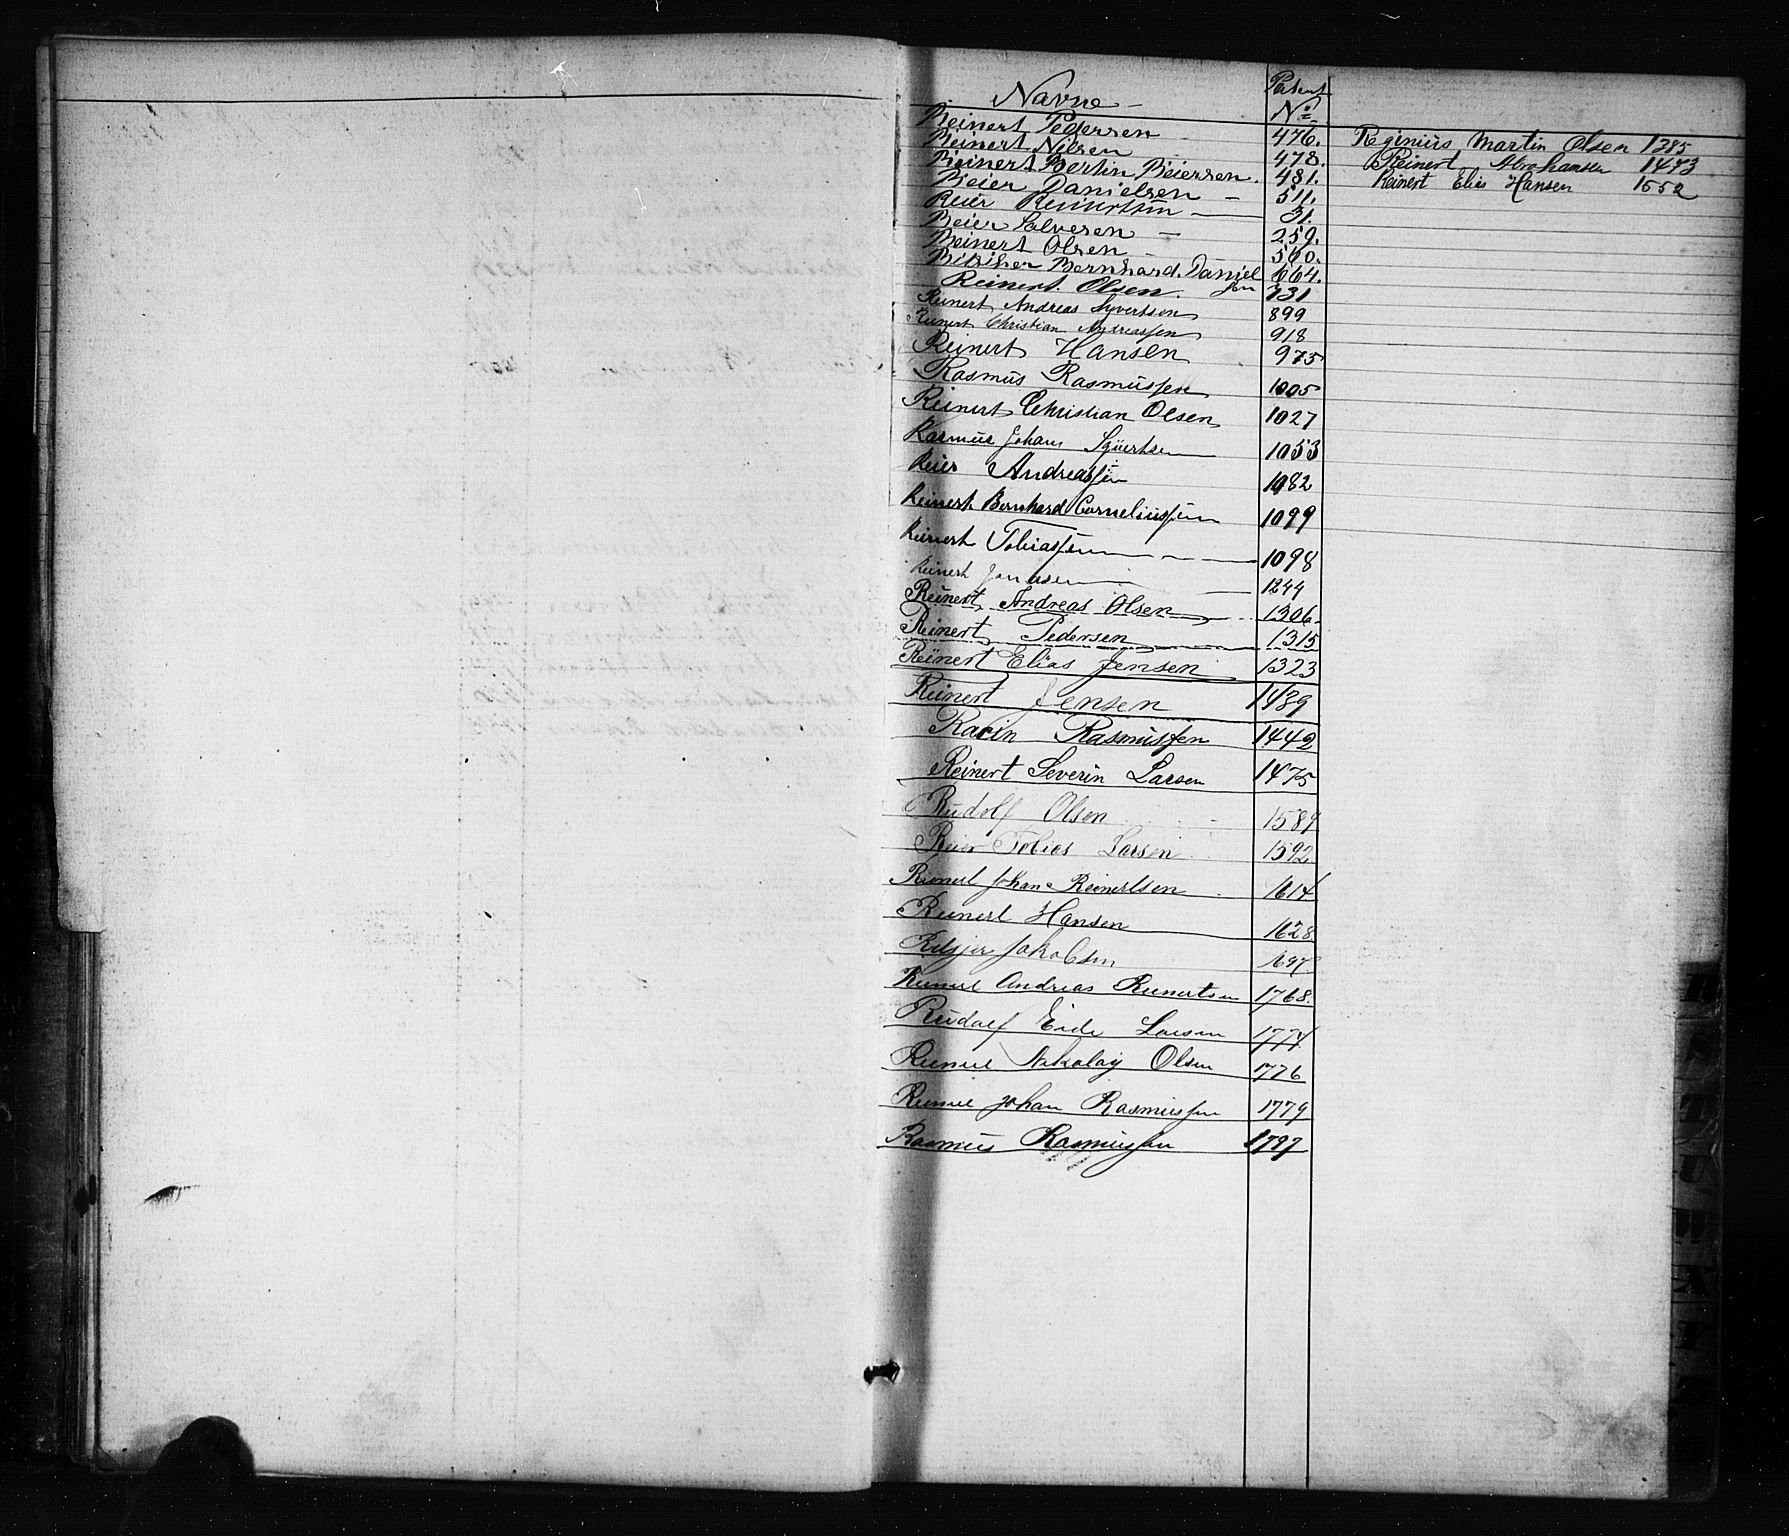 Navne - Patent
No
Reinert Pedersen 476.
Reinert Nilsen 478.
Reinert Bertin Reiersen. 481.
Reier Danielsen - 511.
Reier Reinertsen - 31.
Reier Salvesen - 259.
Reinert Olsen - 560.
Bernhard Daniel 664.
sen
Reinert Olsen. 731
Reinert Andreas Syvertsen 899
Reinert Christian Andreassen 918
Reinert Hansen 975
Rasmus Rasmussen 1005
Reinert Christian Olsen 1027
Rasmus Johan Syvertsen 1053
Reier Andreassen 1082
Reinert Bernhard Corneliussen 1099
Reinert Tobiassen 1098
Reinert Jonassen 1244
Reinert Andreas Olsen 1306.
Reinert Pedersen 1315
Reinert Elias Jensen 1323
Reinert Jensen 1439
Karin Rasmussen 1442
Reinert Severin Larsen 1475
Rudolf Olsen 1589
Reier Tobias Larsen 1592
Reinert Johan Reinertsen 1614
Reinert Hansen 1628
Jakobsen 1697
Reinert Andreas Reinertsen 1768.
Rudolf Larsen 1774
Reinert Nikolay Olsen 1776
Reinert Johan Rasmussen 1779
Rasmus Rasmussen 1797
Reginius Martin Olsen 1385
Reinert Abrahamsen 1473
Reinert Elias Hansen 1552
R
S
T
U
W
X
Y
Z